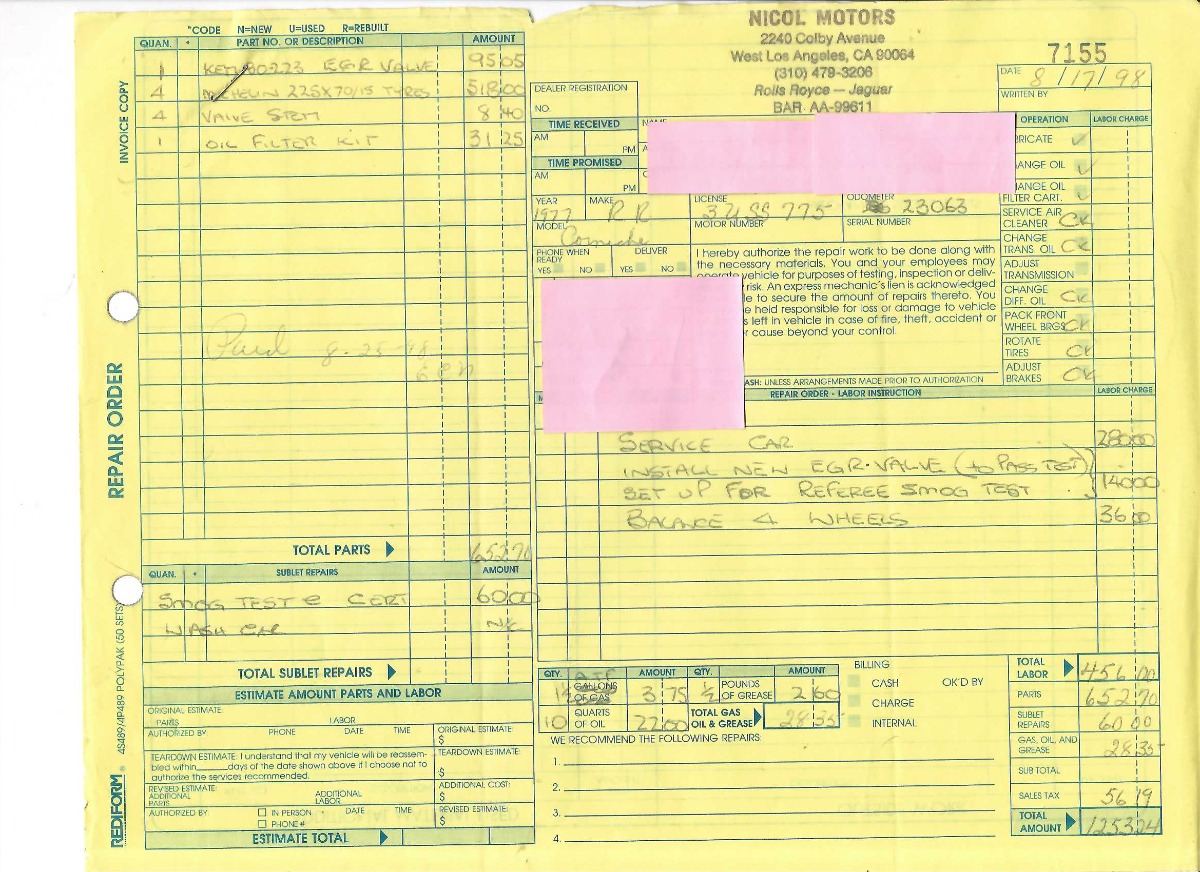 *CODE N=NEW U=USED R=REBUILT
QUAN. * PART NO. OR DESCRIPTION AMOUNT
1 EGR VALVE 95 05
4 MICHELIN 225X70/15 TYRES 518 00
4 VALVE STEM 8 40
1 OIL FILTER KIT 31 25
INVOICE COPY
REPAIR ORDER
REDIFORM ® 4S489/4P489 POLYPAK (50 SETS)
Paid 8-25-98
TOTAL PARTS 652 70
QUAN. * SUBLET REPAIRS AMOUNT
SMOG TEST & CERT 60 00
WASH CAR N/C
TOTAL SUBLET REPAIRS
ESTIMATE AMOUNT PARTS AND LABOR
ORIGINAL ESTIMATE:
PARTS LABOR
AUTHORIZED BY PHONE DATE TIME ORIGINAL ESTIMATE: $
TEARDOWN ESTIMATE: I understand that my vehicle will be reassem-
bled within______days of the date shown above if I choose not to
authorize the services recommended.
TEARDOWN ESTIMATE: $
REVISED ESTIMATE:
ADDITIONAL PARTS: ADDITIONAL LABOR: ADDITIONAL COST: $
AUTHORIZED BY IN PERSON DATE TIME REVISED ESTIMATE: $
PHONE #
ESTIMATE TOTAL
NICOL MOTORS
2240 Colby Avenue
West Los Angeles, CA 90064
(310) 479-3206
Rolls Royce — Jaguar
BAR. AA-99611
7155
DATE 8/17/98
WRITTEN BY
DEALER REGISTRATION
NO.
TIME RECEIVED
AM PM
TIME PROMISED
AM PM
NAME
YEAR 1977 MAKE RR LICENSE 3USS775 ODOMETER 23063
MODEL Corniche MOTOR NUMBER SERIAL NUMBER
PHONE WHEN READY DELIVER
YES NO YES NO
I hereby authorize the repair work to be done along with
the necessary materials. You and your employees may
operate vehicle for purposes of testing, inspection or deliv-
risk. An express mechanic's lien is acknowledged
le to secure the amount of repairs thereto. You
e held responsible for loss or damage to vehicle
s left in vehicle in case of fire, theft, accident or
r cause beyond your control.
ASH: UNLESS ARRANGEMENTS MADE PRIOR TO AUTHORIZATION
OPERATION LABOR CHARGE
BRICATE ✓
ANGE OIL ✓
HANGE OIL FILTER CART. ✓
SERVICE AIR CLEANER CK
CHANGE TRANS. OIL CK
ADJUST TRANSMISSION
CHANGE DIFF. OIL CK
PACK FRONT WHEEL BRGS CK
ROTATE TIRES CK
ADJUST BRAKES CK
REPAIR ORDER - LABOR INSTRUCTION LABOR CHARGE
SERVICE CAR 280 00
INSTALL NEW EGR-VALVE (to PASS TEST)
SET UP FOR REFEREE SMOG TEST 140 00
BALANCE 4 WHEELS 36 00
QTY. AMOUNT QTY. AMOUNT
ATF GALLONS OF GAS 3 75 1/2 POUNDS OF GREASE 2 60
10 QUARTS OF OIL 22 00 TOTAL GAS OIL & GREASE 28 35
WE RECOMMEND THE FOLLOWING REPAIRS:
1.
2.
3.
4.
BILLING
CASH OK'D BY
CHARGE
INTERNAL
TOTAL LABOR 456 00
PARTS 652 70
SUBLET REPAIRS 60 00
GAS, OIL, AND GREASE 28 35
SUB TOTAL
SALES TAX 56 19
TOTAL AMOUNT 1253 24